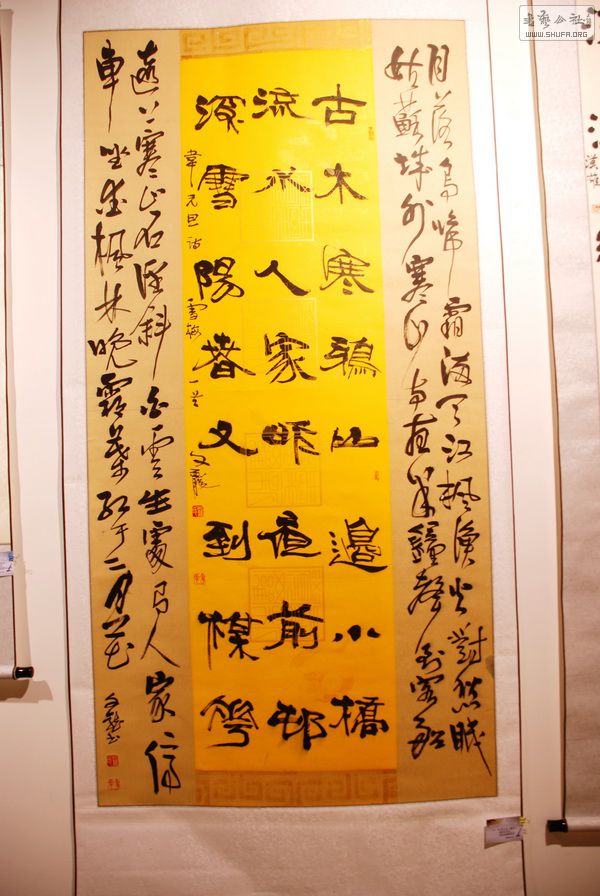 月落烏啼霜滿天江楓漁火對愁眠
姑蘇城外寒山寺夜半鐘聲到客船
古木寒鴉山邊小橋
流水人家昨夜前邨
深雪陽春又到楳花
韋元旦詩 雪梅 一首 文龍
遠上寒山石徑斜白雲生處有人家停
車坐愛楓林晚霜葉紅于二月花
文龍書
书艺公社
WWW.SHUFA.ORG